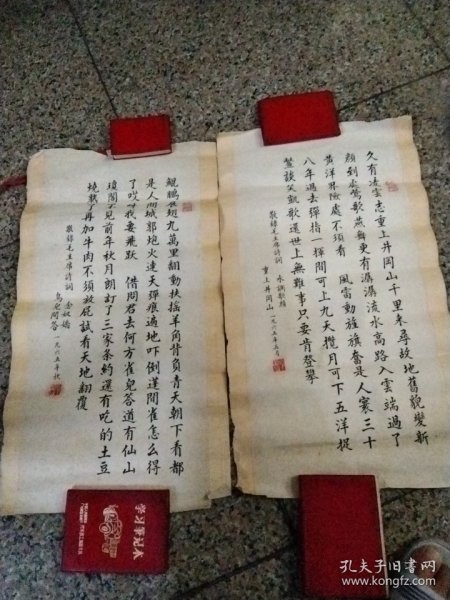 久有凌雲志重上井岡山千里来尋故地舊貌變新
顏到處鶯歌燕舞更有潺潺流水高路入雲端過了
黄洋界險處不須看 風雷動旌旗奮是人寰三十
八年過去彈指一揮間可上九天攬月可下五洋捉
鱉談笑凱歌還世上無難事只要肯登攀
敬錄毛主席詩詞 水調歌頭
重上井岡山 一九六五年五月
鯤鵬展翅九萬里翻動扶摇羊角背負青天朝下看都
是人間城郭炮火連天彈痕遍地吓倒蓬間雀怎么得
了哎呀我要飛躍 借問君去何方雀兒答道有仙山
瓊閣不見前年秋月朗訂了三家條約還有吃的土豆
燒熟了再加牛肉不須放屁試看天地翻覆
敬錄毛主席詩詞 念奴嬌
鳥兒問答 一九六五年秋
孔夫子旧书网
www.kongfz.com